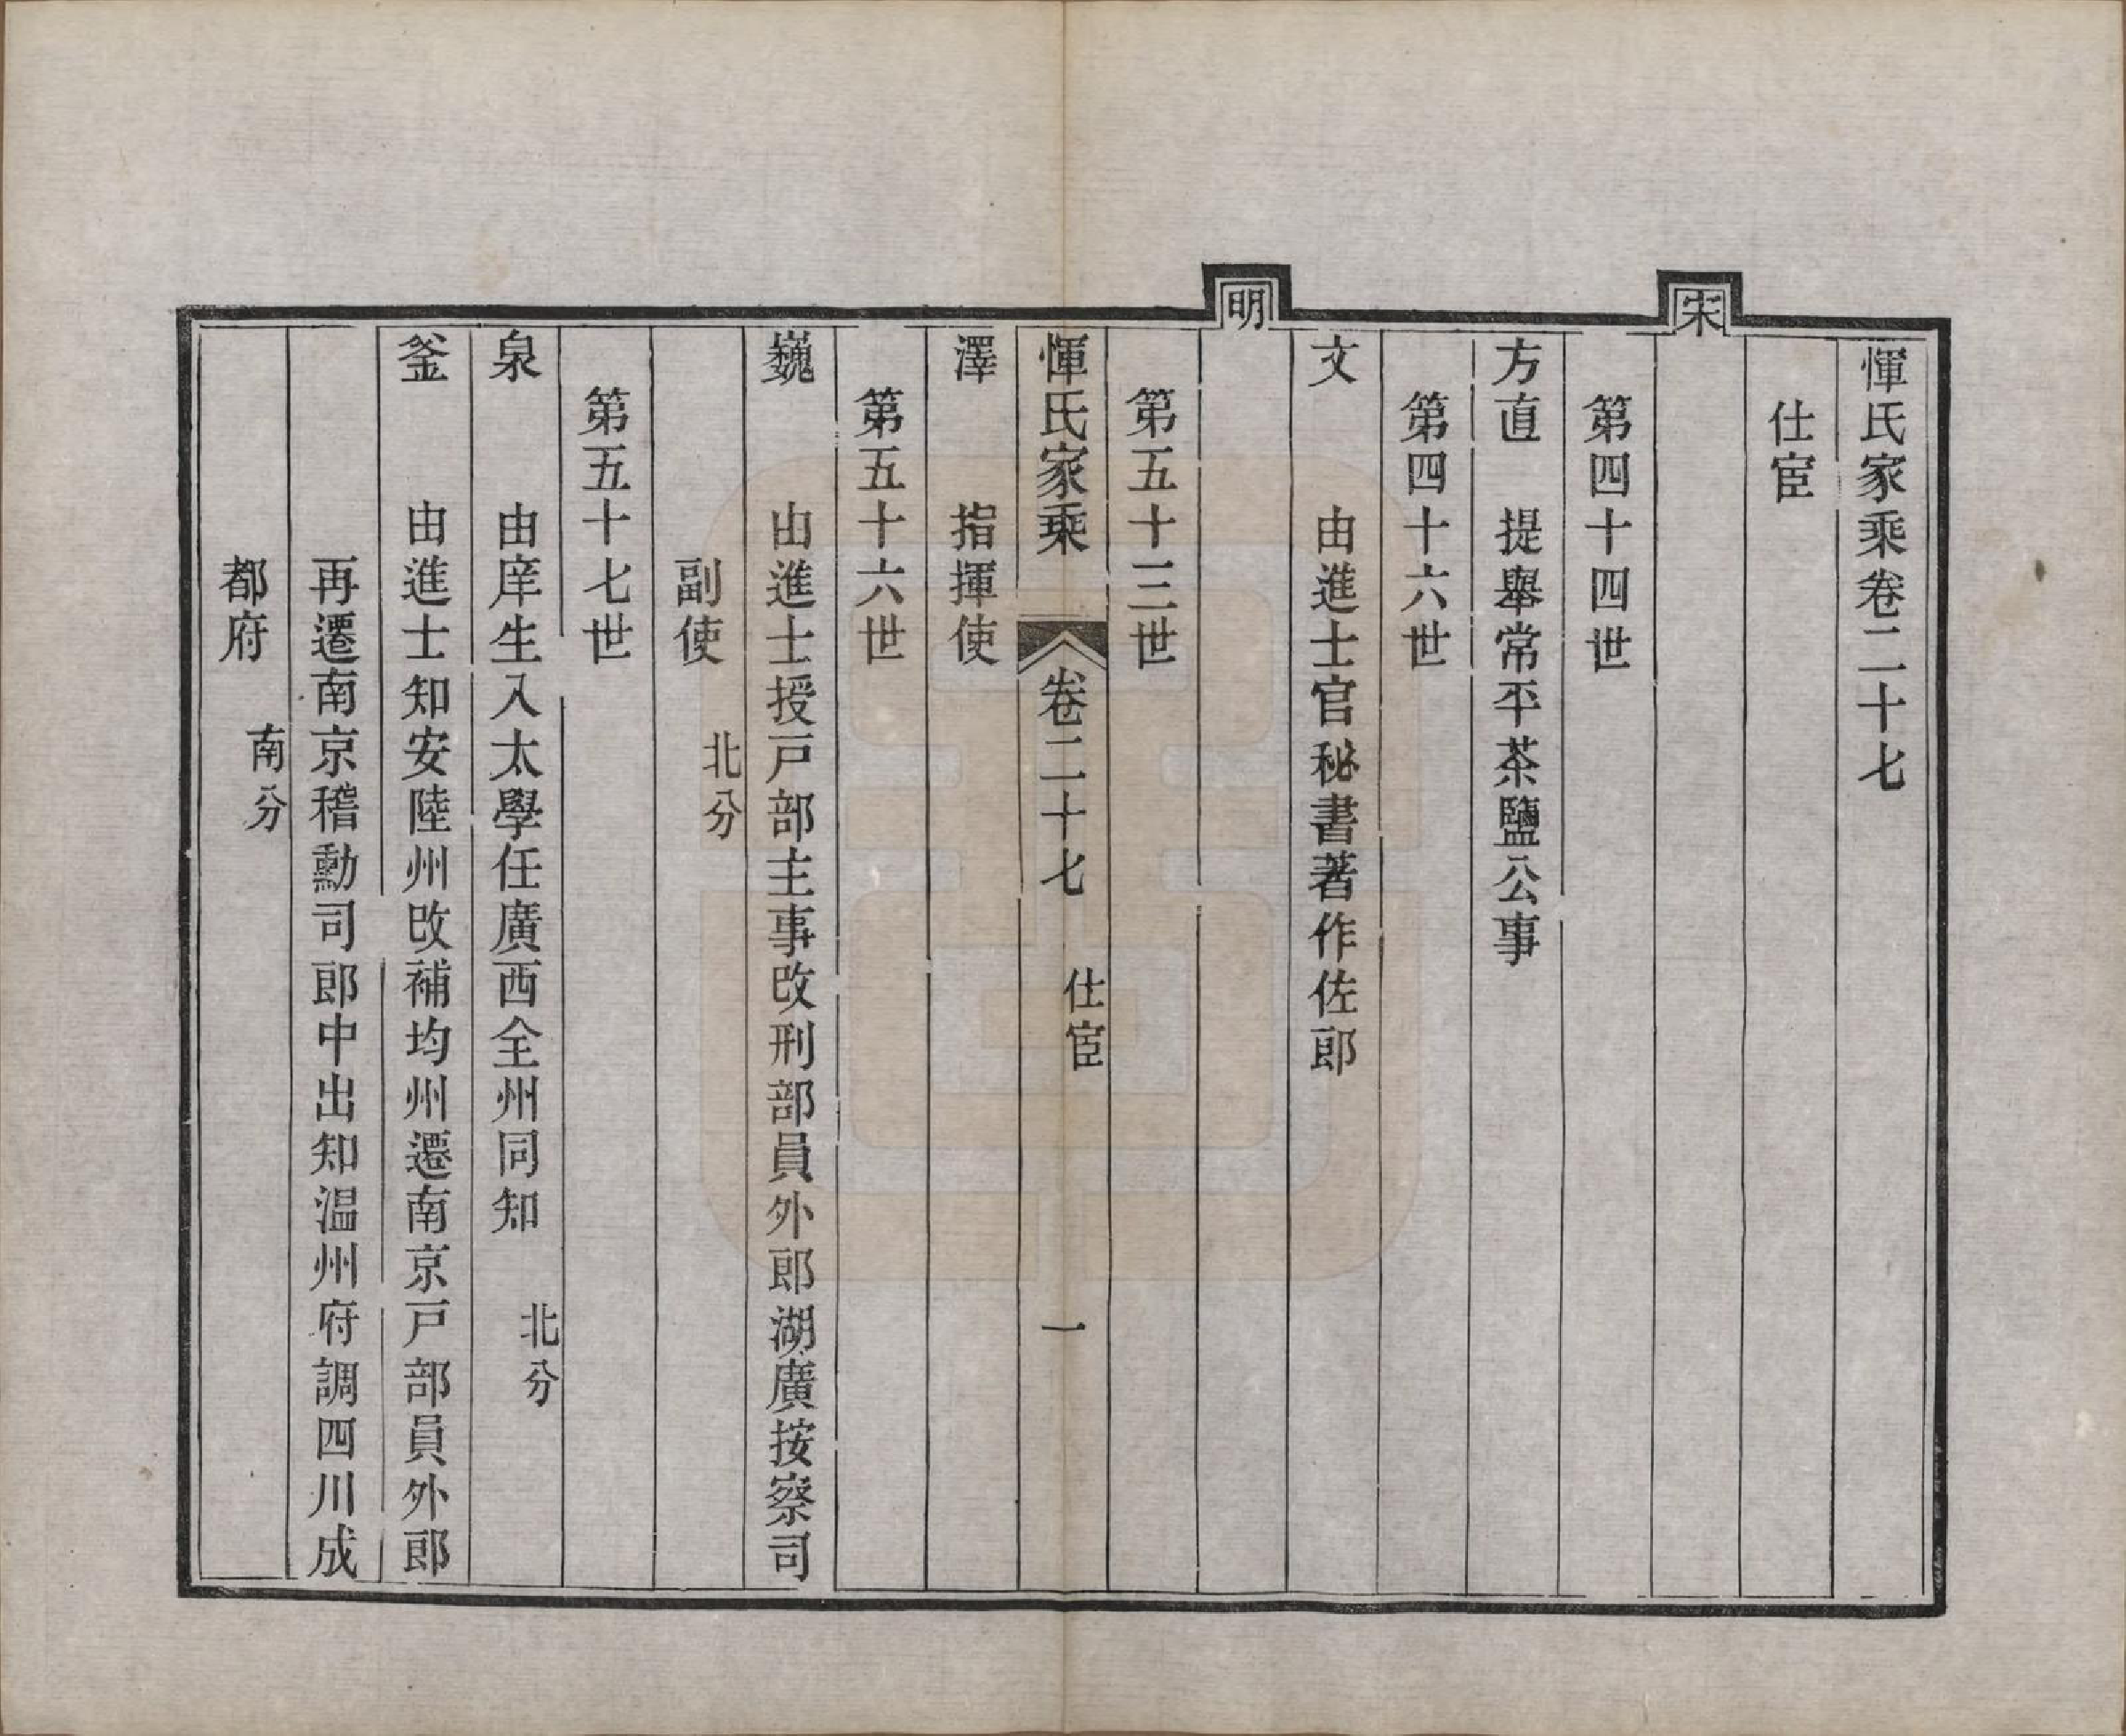 惲氏家乘卷二十七
仕宦
宋
第四十四世
方直　提舉常平茶鹽公事
第四十六世
文　由進士官秘書著作佐郎
明
第五十三世
惲氏家乘　卷二十七　仕宦　一
澤　指揮使
第五十六世
巍　由進士授戸部主事改刑部員外郎湖廣按察司
副使　北分
第五十七世
泉　由庠生入太學任廣西全州同知　北分
釜　由進士知安陸州改補均州遷南京戸部員外郎
再遷南京稽勳司郎中出知温州府調四川成
都府　南分